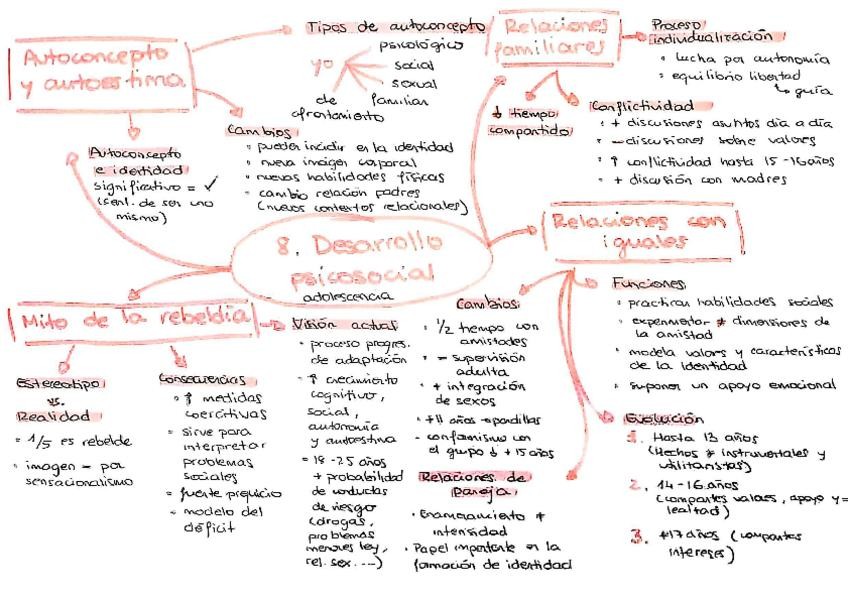 8. Desarrollo
psicosocial
adolescencia
Autoconcepto
y autoestima
Tipos de autoconcepto
yo
psicológico
social
sexual
familiar
de
afrontamiento
Cambios
• pueden incidir en la identidad
• nueva imagen corporal
• nuevas habilidades físicas
• cambio relación padres
(nuevos contextos relacionales)
Autoconcepto
e identidad
significativo = ✓
(sent. de ser uno
mismo)
Relaciones
familiares
Proceso
individualización
• lucha por autonomía
• equilibrio libertad
↳ guía
↓ tiempo
compartido
Conflictividad
• + discusiones asuntos día a día
• - discusiones sobre valores
• ↑ conflictividad hasta 15-16 años
• + discusión con madres
Relaciones con
iguales
Funciones
• practican habilidades sociales
• experimentar ≠ dimensiones de
la amistad
• modela valors y características
de la identidad
• suponer un apoyo emocional
Evolución
1. Hasta 13 años
(Hechos ≠ instrumentales y
utilitaristas)
2. 14-16 años
(compartes valores, apoyo y =
lealtad)
3. +17 años (compartes
intereses)
Cambios
• 1/2 tiempo con
amistades
• - supervisión
adulta
• + integración
de sexos
• +11 años → pandillas
- conformismo con
el grupo ↓ +15 años
Relaciones de
pareja
• Enamoramiento +
intensidad
• Papel importante en la
formación de identidad
Mito de la rebeldía
Estereotipo
vs.
Realidad
• 1/5 es rebelde
• imagen - por
sensacionalismo
Consecuencias
• ↑ medidas
coercitivas
• sirve para
interpretar
problemas
sociales
• fuerte prejuicio
• modelo del
déficit
Visión actual
• proceso progres.
de adaptación
• ↑ crecimiento
cognitivo,
social,
autonomía
y autoestima
• 18-25 años
+ probabilidad
de conductas
de riesgo
(drogas,
problemas
menores ley,
rel. sex. ...)